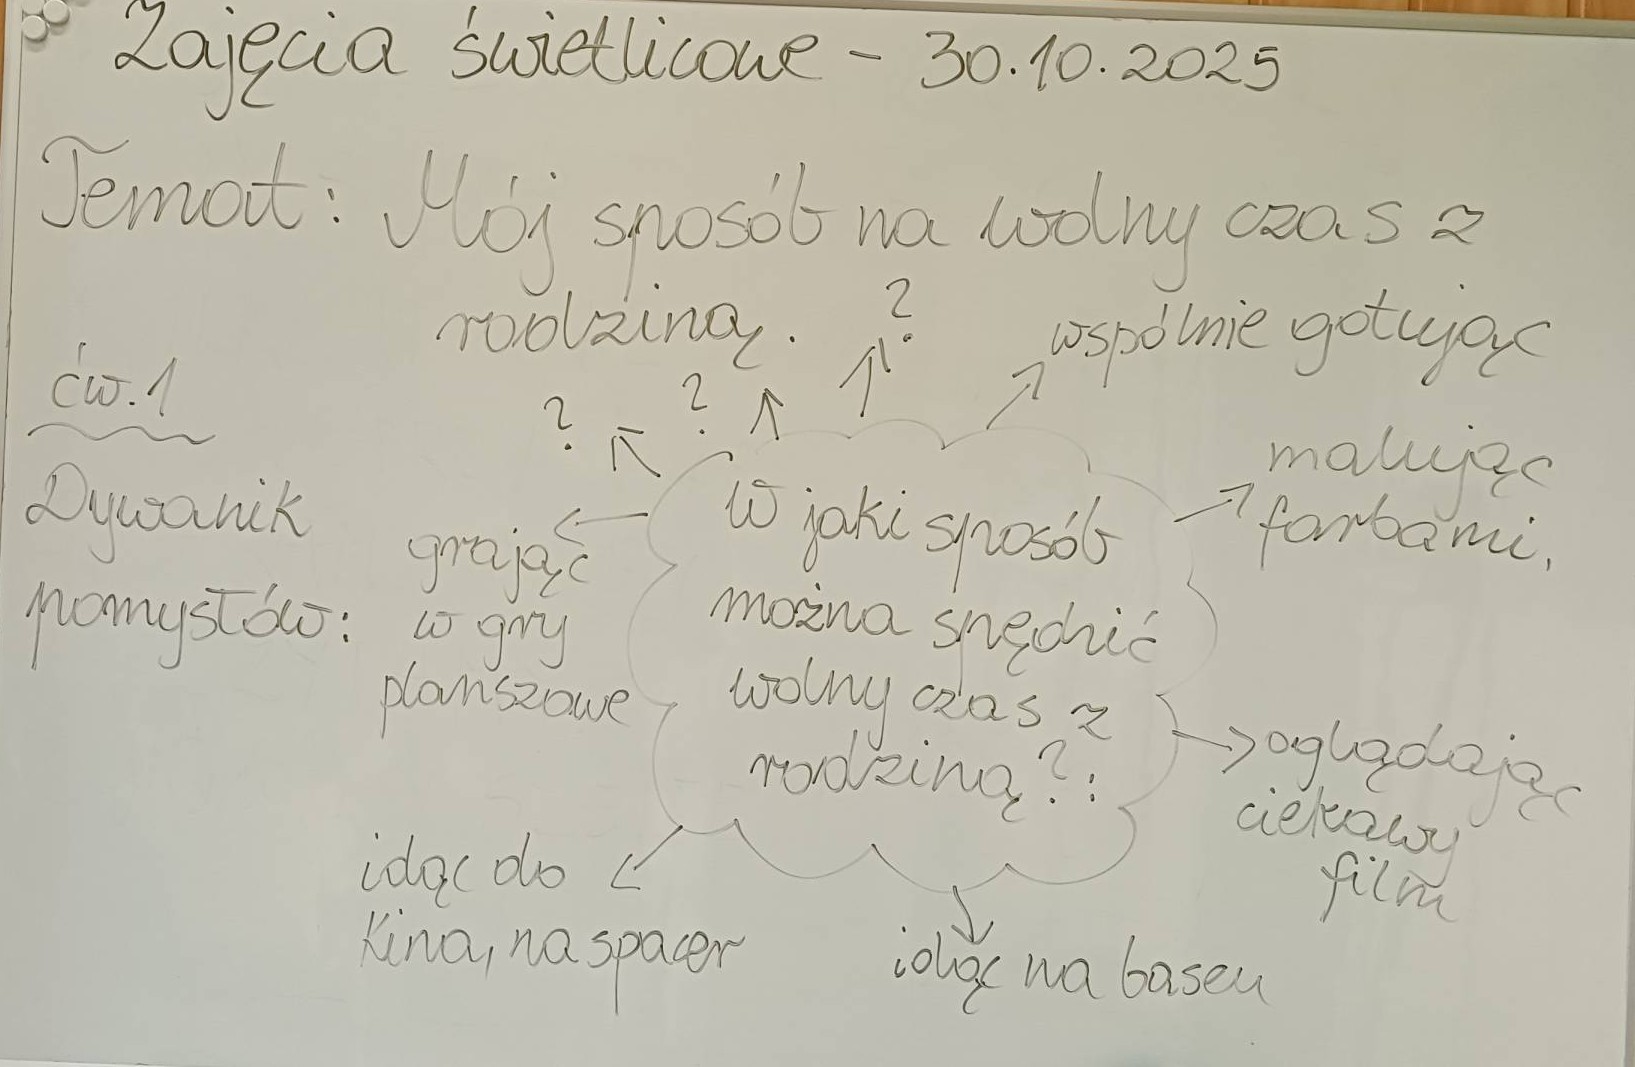 Zajęcia świetlicowe - 30.10.2025
Temat: Mój sposób na wolny czas z
rodziną.
ćw. 1
Dywanik
pomysłów:
W jaki sposób
można spędzić
wolny czas z
rodziną?:
?
?
?
wspólnie gotując
malując
farbami.
oglądając
ciekawy
film
idąc na basen
idąc do
kina, na spacer
grając
w gry
planszowe